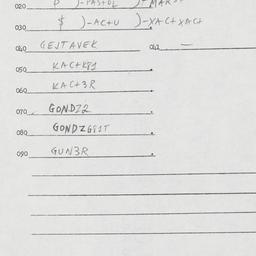 020 P )-PASTOL )+MARS
030 $ )-AC+U )-XAC+XAC+
040 GEJTAVEK 042 —
050 KAC+K81
060 KAC+3R
070 GONDZ2
080 GONDZG81T
090 GUN3R